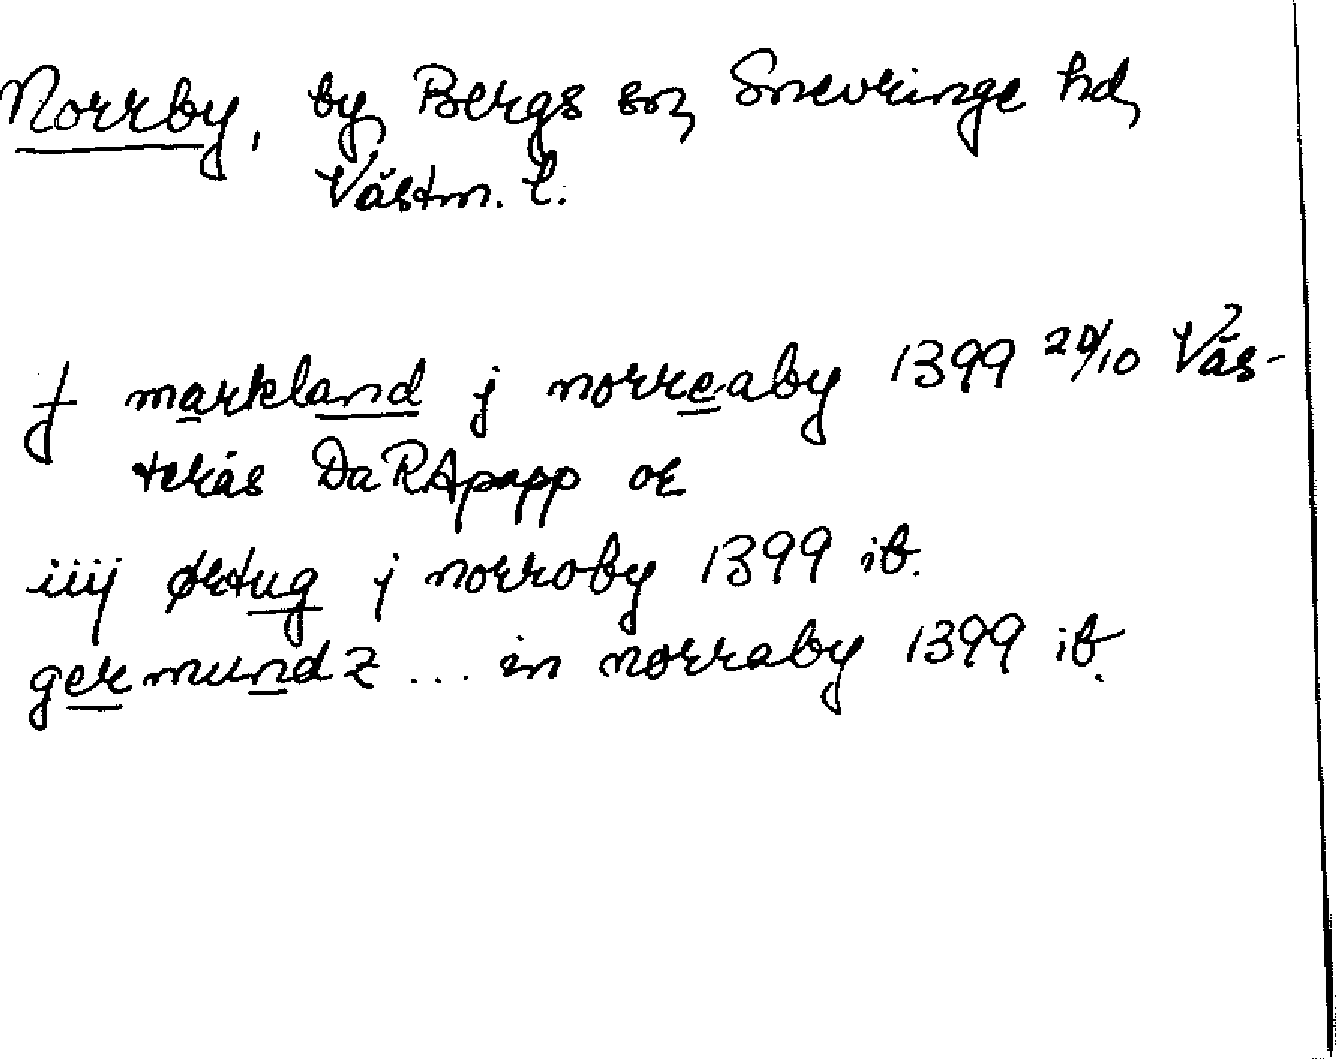 Norrby, by, Bergs sn, Snevringe hd,
Västm. l.
j markland j norreaby 1399 20/10 Väs-
terås DaRApapp or
iiij ørtug j norroby 1399 ib.
germundz ... in norraby 1399 ib.